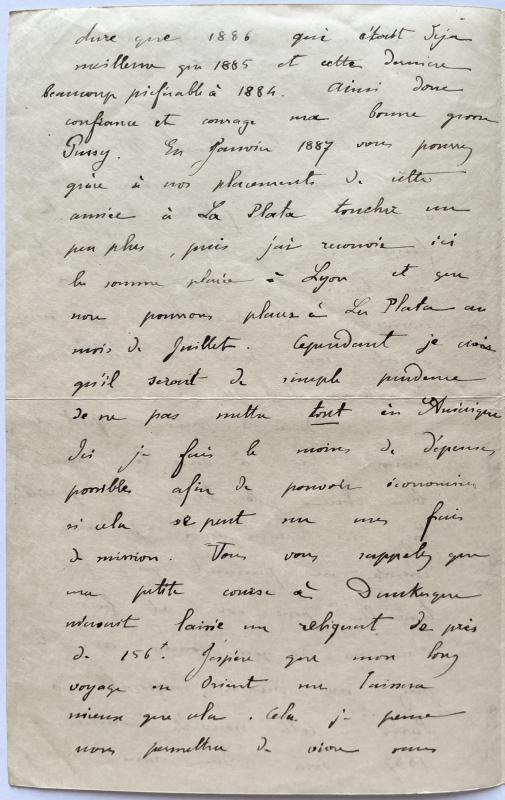 dure que 1886 qui était déjà
meilleure que 1885 et cette dernière
beaucoup préférable à 1884. Ainsi donc
confiance et courage ma bonne grosse
En Janvier 1887 vous pourrez
grâce à nos placements de cette
année à La Plata toucher un
peu plus, puis j'ai renvoié ici
la somme placée à Lyon et que
nous pourrons placer à La Plata au
mois de Juillet. Cependant je crois
qu'il serait de simple prudence
de ne pas mettre tout en Amérique
Ici je fais le moins de dépenses
possibles afin de pouvoir économiser
si cela se peut sur mes frais
de mission. Vous vous rappelez que
ma petite course à Dunkerque
m'avait laissé un reliquat de près
de 156f. J'espère que mon long
voyage en Orient me laissera
mieux que cela. Cela je pense
nous permettra de vivre sans